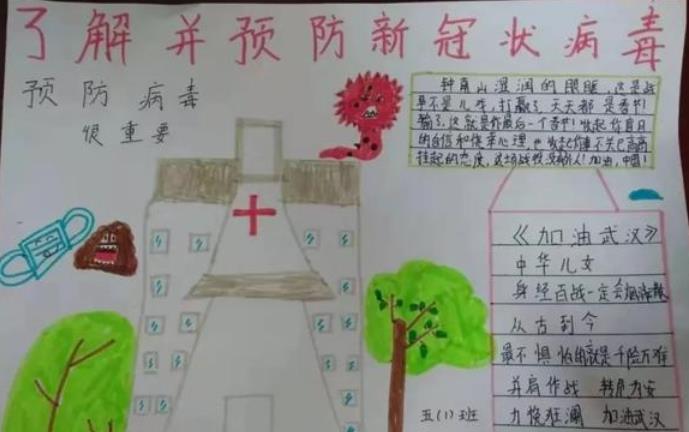 了解并预防新冠状病毒
预防病毒
很重要
钟南山湿润的眼眶,这是战
单不是儿牛,打赢了天天都是春节!
输了,这就是你最后一个春节!收起你盲目
的自信和侥幸心理,也收起事不关己高高
挂起的态度,这场战役没有人!加油,中国!
《加油武汉》
中华儿女
身经百战一定会
从古到今
最不惧怕的就是千险万难
并肩作战 转危为安
力挽狂澜 加油武汉
五(1)班